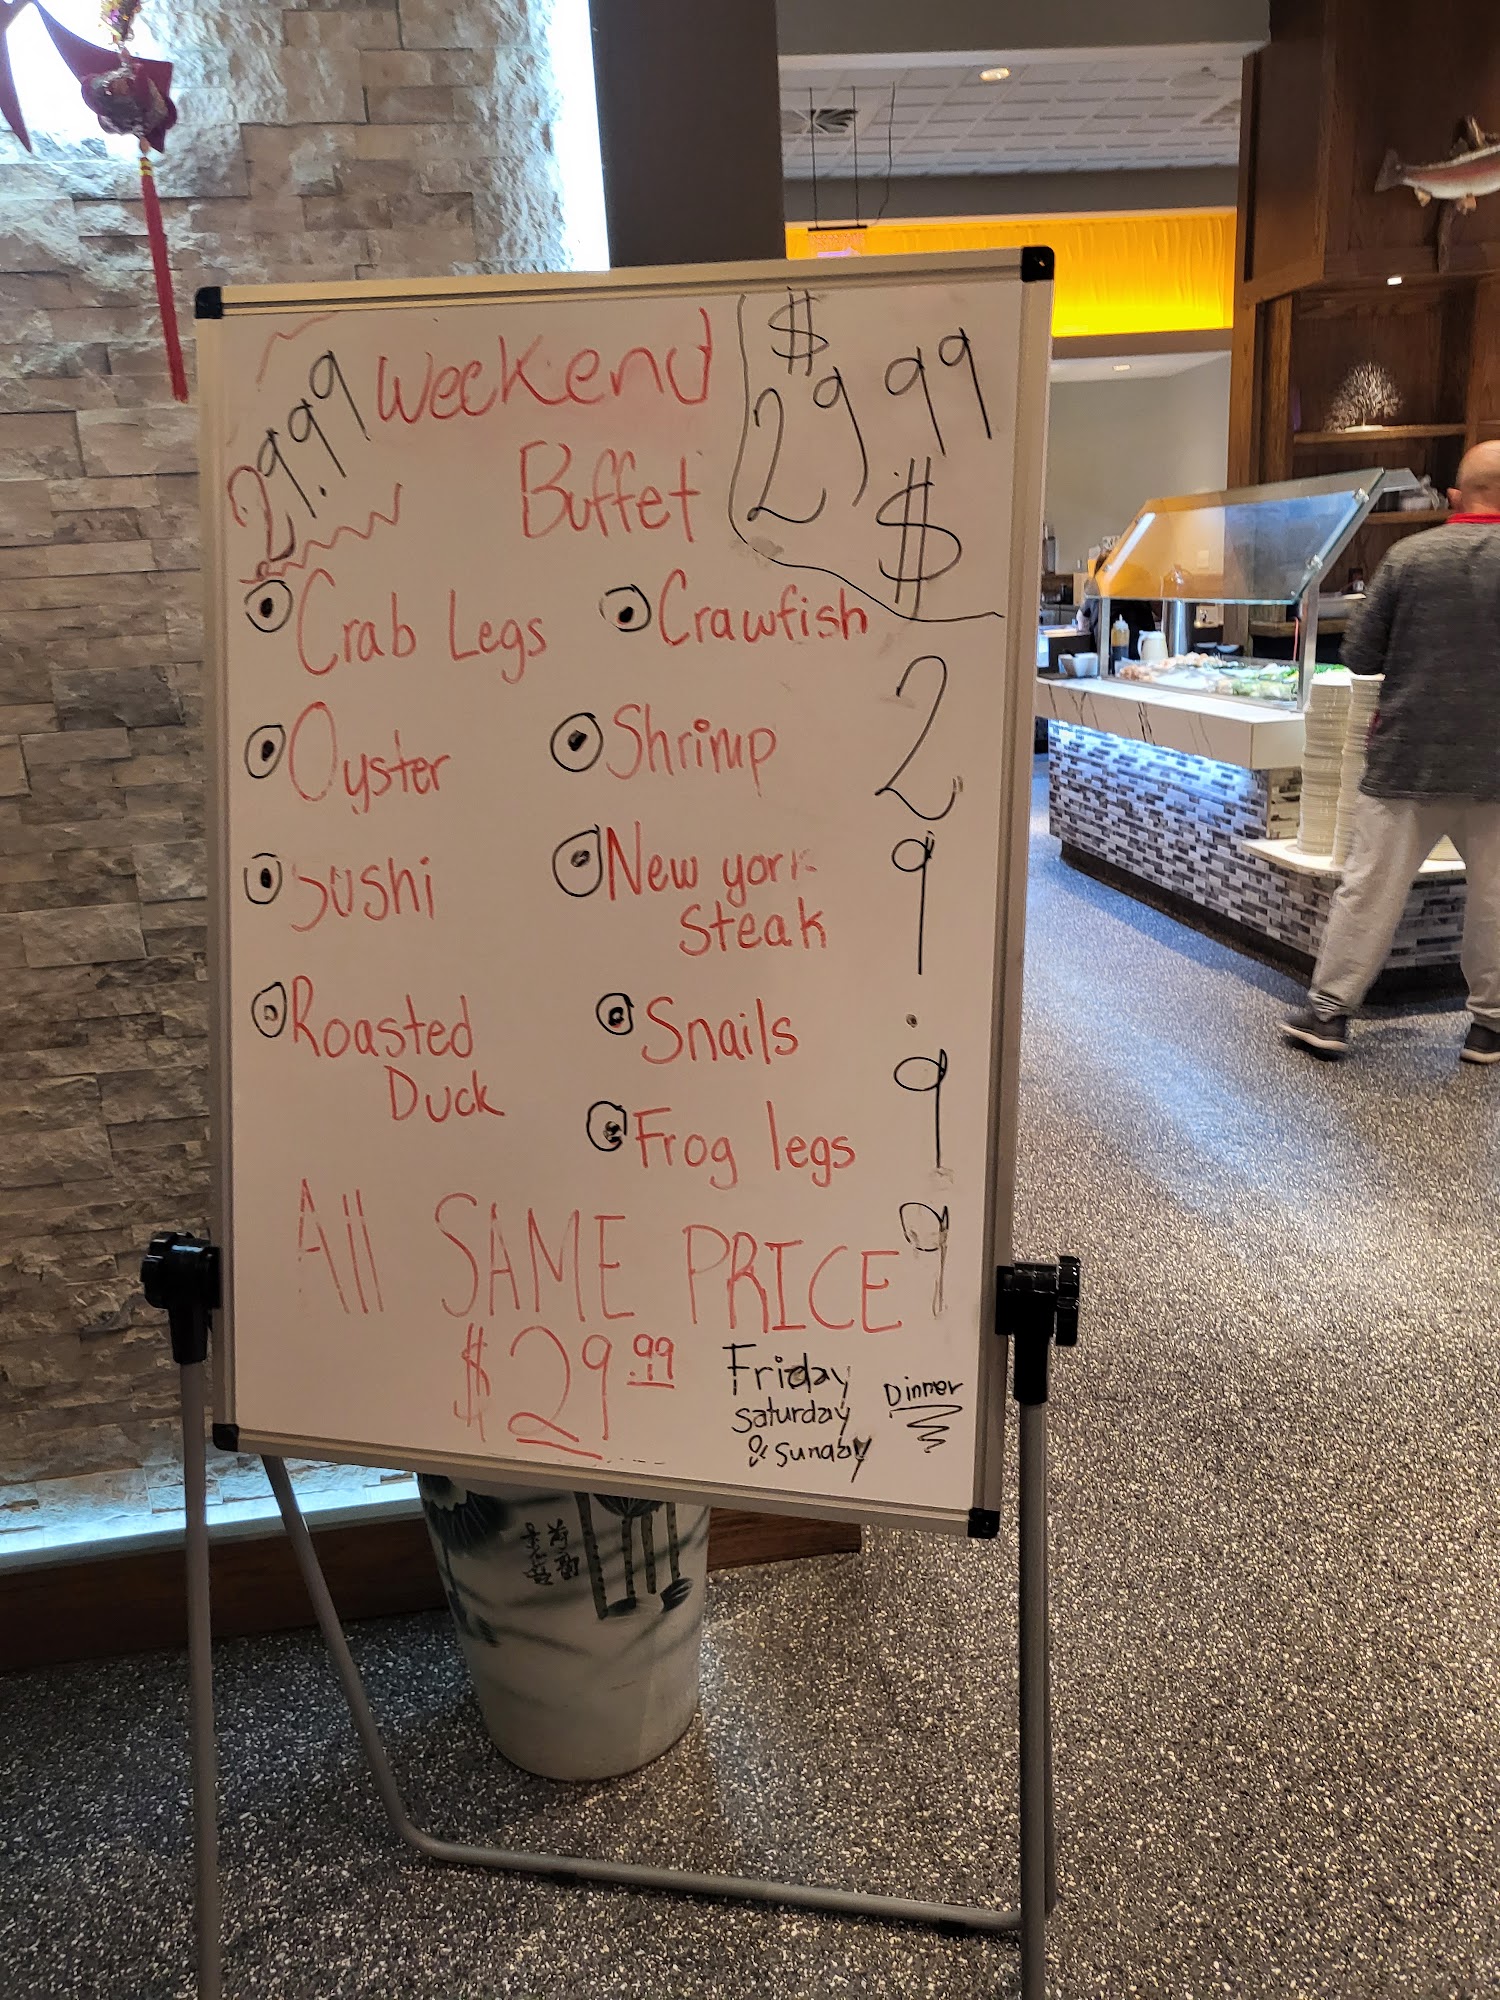 29.99
Weekend
Buffet
$
29 99
$
Crab Legs
Crawfish
Oyster
Shrimp
Sushi
New york
Steak
Roasted
Duck
Snails
Frog legs
2
9
.
9
9
All SAME PRICE
$29.99
Friday
Saturday
& Sunday
Dinner